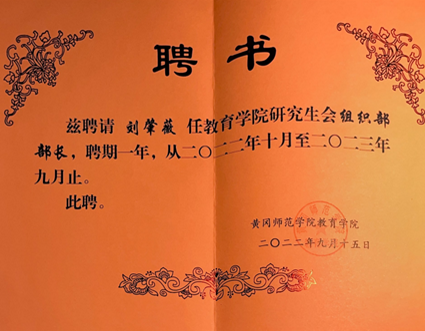 聘书
兹聘请 刘肇薇 任教育学院研究生会组织部
部长，聘期一年，从二〇二二年十月至二〇二三年
九月止。
此聘。
黄冈师范学院教育学院
二〇二二年九月十五日